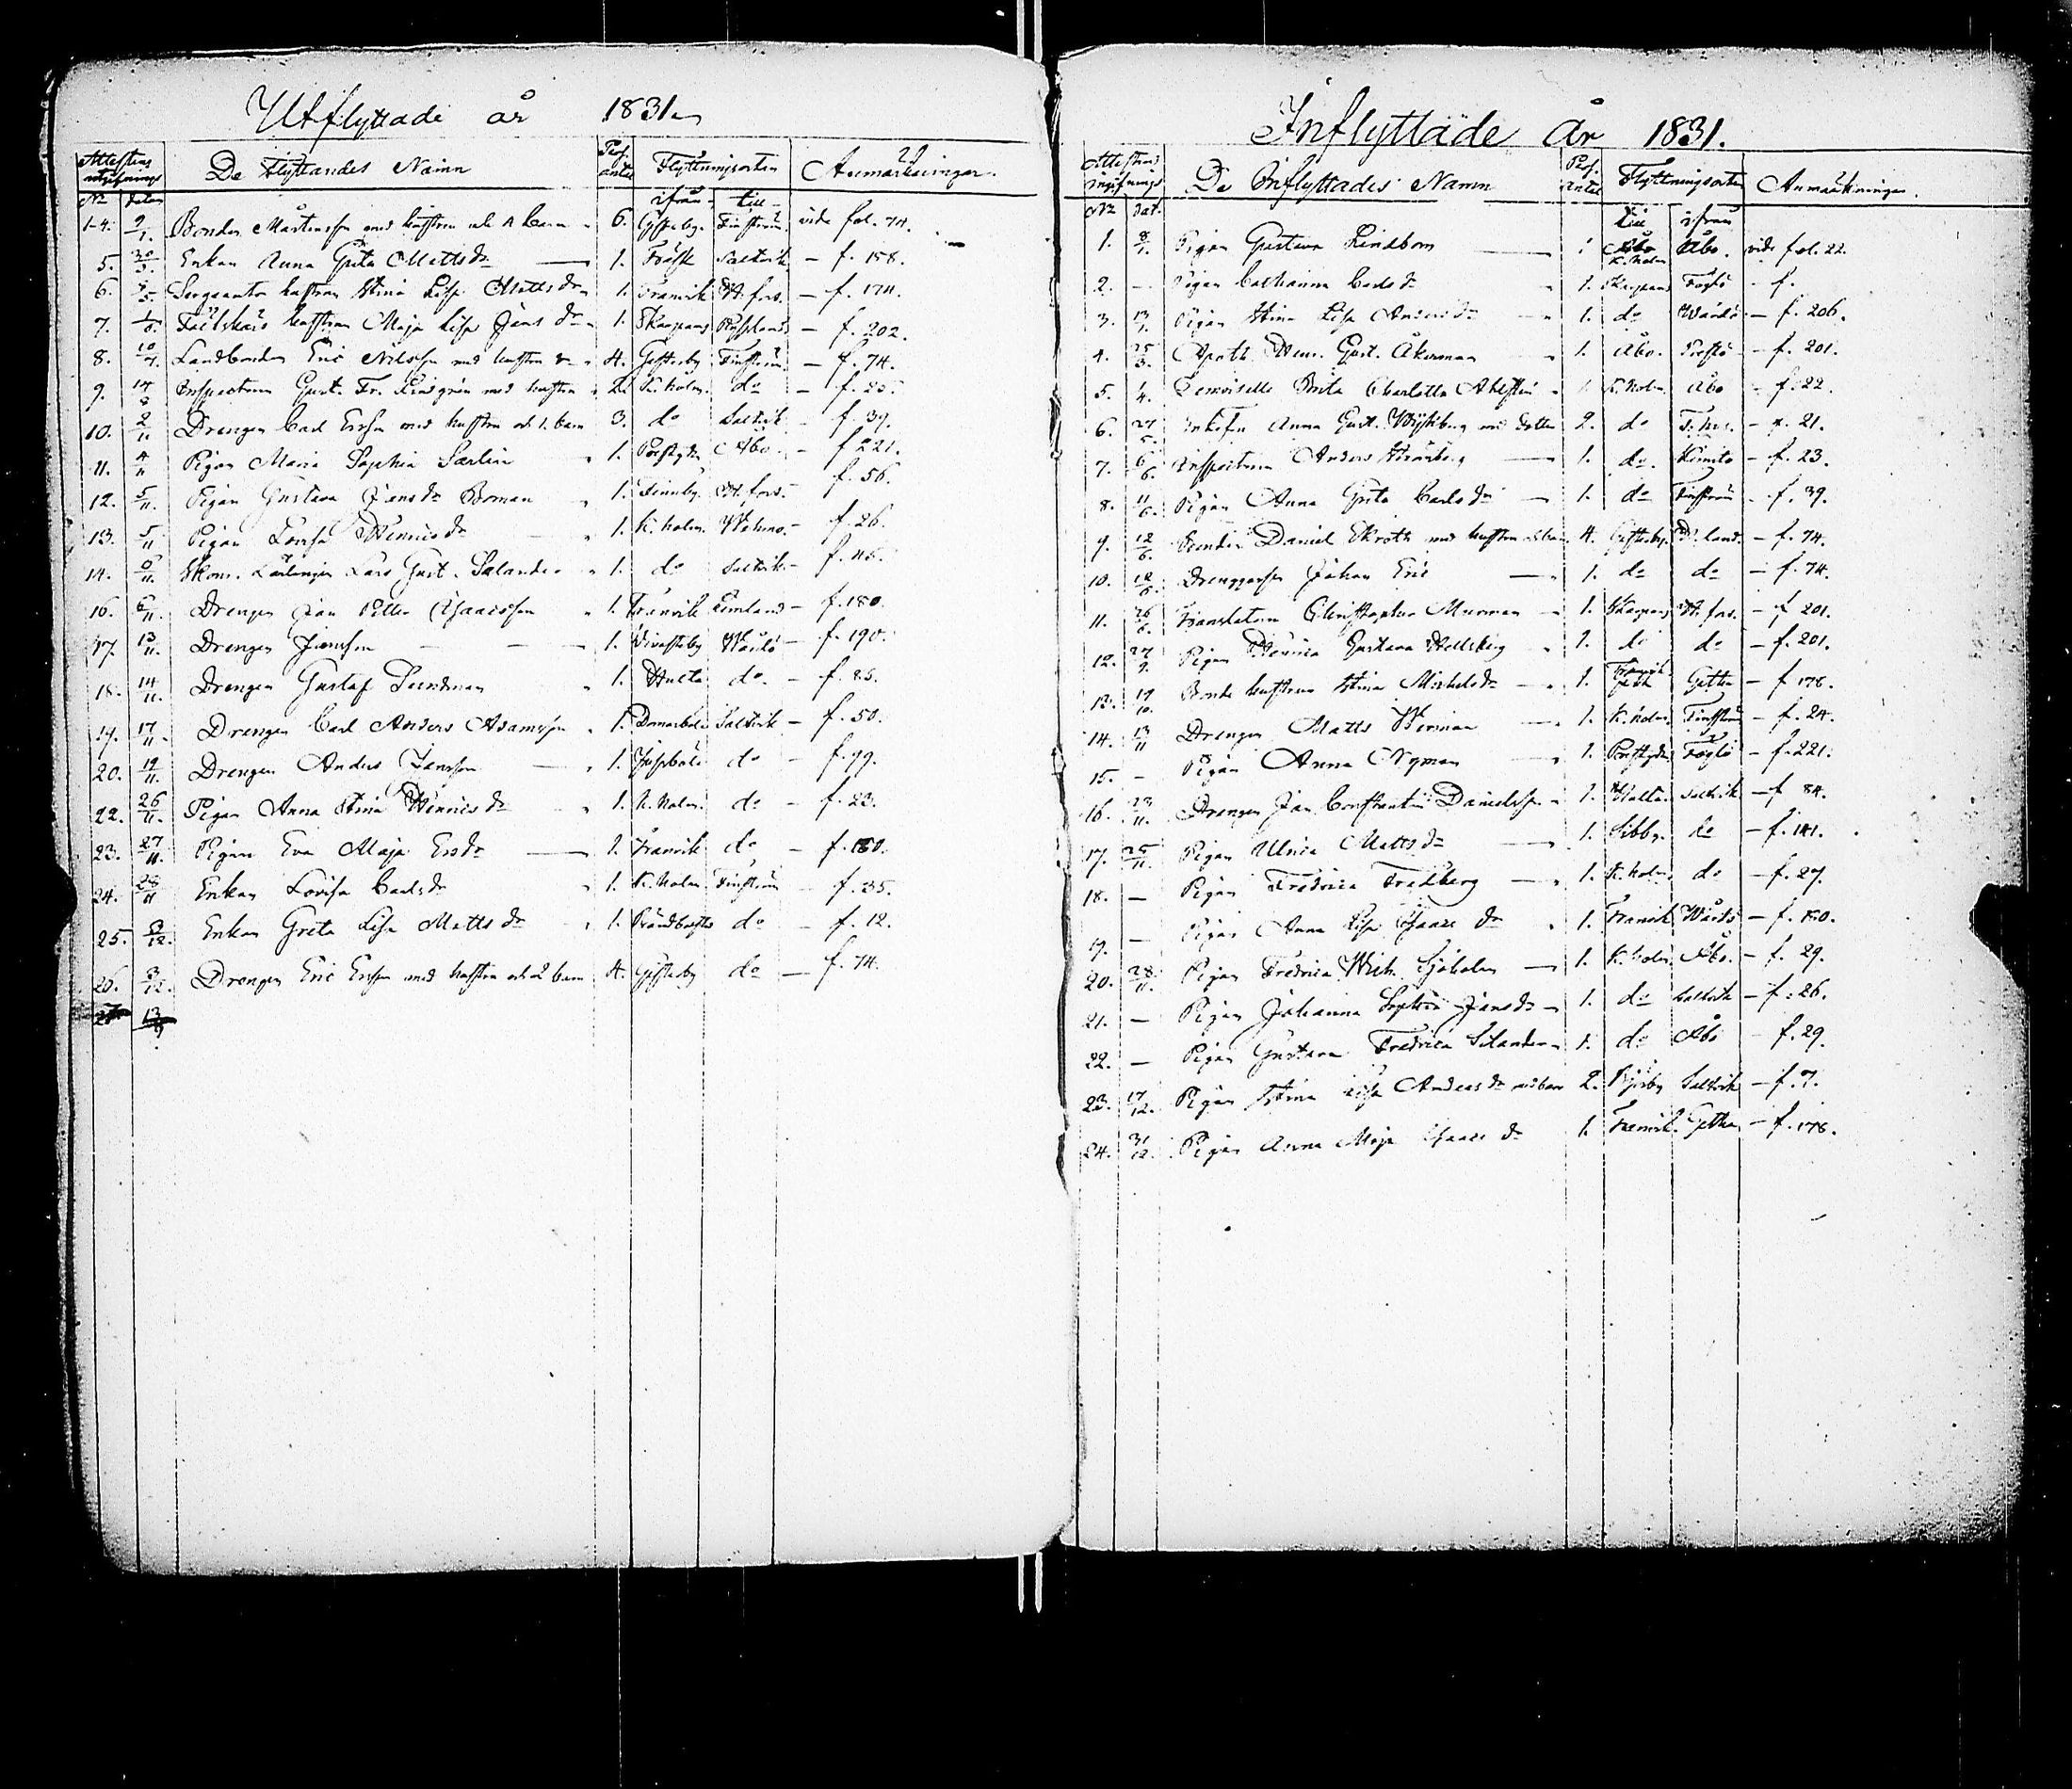 Utflyttade år 1831
Attestens utgifnings De Flyttandes Namn Pers. antal Flyttningsorten Anmärkningar
No datum ifrån till
1-4. 9/1. Bonden Mårtensson med hustrun och 4 barn 6. Finström vide fol. 74.
5. 30/3. Enkan Anna Greta Mattsdr 1. Saltvik f. 158.
6. Sergeants hustrun Stina Lisa Mattsdr 1. Tranvik H.fors. f. 174.
7. Fältskärs hustrun Maja Lisa Jansdr 1. Skarpans Ryssland f. 202.
8. 10/7. Landbonden Eric Nilsson med hustru 4. Gesterby Finström f. 74.
9. 14 Inspectoren Gust. Fr. Lindgrén med hustru 2. K.holm. do
10. 2/11 Drengen Carl Ersson med hustru och 1. barn 3. do Saltvik f. 39.
11. 4/11 Pigan Maria Sophia Sarlin 1. Prestgrdn Åbo f. 221.
12. 5/11. Pigan Gustava Jansdr Boman 1. Finnby. H.fors. f. 56.
13. 5/11 Pigan Lovisa Henricsdr 1. K.holm. f. 26.
14. 6/11. Lärlingen Lars Gust. Salander 1. do Saltvik
16. 6/11. Drengen Jan Petter Isacsson 1. Tranvik Lemland f. 180.
17. 13/11. Drengen Jansson 1. Wårdö f. 190.
18. 14/11 Drengen Gustaf Sundman 1. Hulta do. f. 85.
19. 17/11. Drengen Carl Anders Adamsson 1. Domarböle Saltvik f. 50.
20. 19/11. Drengen Anders Jansson 1. do f. 99.
22. 26/11. Pigan Anna Stina Henricsdr 1. K.holm. do f. 23.
23. 27/11. Pigan Eva Maja Ersdr 1. Tranvik do f. 180.
24. 28/11 Enkan Lovisa Carlsdr 1. K.holm Finström f. 35.
25. 2/12. Enkan Greta Lisa Mattsdr 1. do f. 12.
26. 3/12. Drengen Eric Ersson med hustru och 2 barn 4. Gesterby do f. 74.
Inflyttade år 1831.
Attestens ingifnings De Inflyttades Namn Pers. antal Flyttningsorten Anmärkningar.
No Dat. till ifrån
1. 8/1. Pigan Gustava Lindbom 1 K.holm Åbo. vide fol. 22.
2. — Pigan Catharina Carlsdr 1. Skarpans Föglö f.
3. 13/1. Pigan Stina Lisa Andersdr 1. do Wårdö f. 206.
4. 25/3. Apoth. Henr. Gust. Åkerman 1. Åbo. f. 201.
5. 1/4. Demoiselle Brita Charlotta 1. K.holm Åbo f. 22.
6. 27/5. Anna Gust. med dotter 2. do f. 21.
7. 6/6. Inspectoren Anders Strömberg 1. do. Kimito f. 23.
8. 11/6. Pigan Anna Greta Carlsdr 1. do Finström f. 39.
9. 12/6. Bonden Daniel Ekroth med hustru 4. Gesterby. f. 74.
10. 12/6. Drenggossen Johan Eric 1. do do f. 74.
11. 26/6. Translatorn Christopher Murman 1. Skarpans H.fors. f. 201.
12. 27/9. Pigan Henrica Gustava Hellsberg 1. do do f. 201.
13. 17/10. Bonde hustrun Stina Michelsdr 1. Getha f. 178.
14. 13/11 Drengen Matts 1. K.holm. Finström f. 24.
15. — Pigan Anna Nyman 1. Prestgrdn Föglö f. 221.
16. 23/11. Drengen Jan Constantin Danielsson 1. Hulta Saltvik f 84.
17. 25/11. Pigan Ulrica Mattsdr 1. Sibby. do f. 141.
18. — Pigan Fredrica Fredberg 1. K.holm do f. 27.
19. — Pigan Anna Lisa Isacsdr 1. Tranvik Wårdö f. 180.
20. 28/11. Pigan Fredrica Wilh. Sjöholm 1. K.holm Åbo. f. 29.
21. — Pigan Johanna Sophia Jansdr 1. do Saltvik f. 26.
22. — Pigan Gustava Fredrica Selander 1. do Åbo f. 29.
23. 17/12. Pigan Stina Lisa Andersdr med barn 2. Saltvik f. 7.
24. 31/12. Pigan Anna Maja Isacsdr 1. Tranvik Getha f. 178.